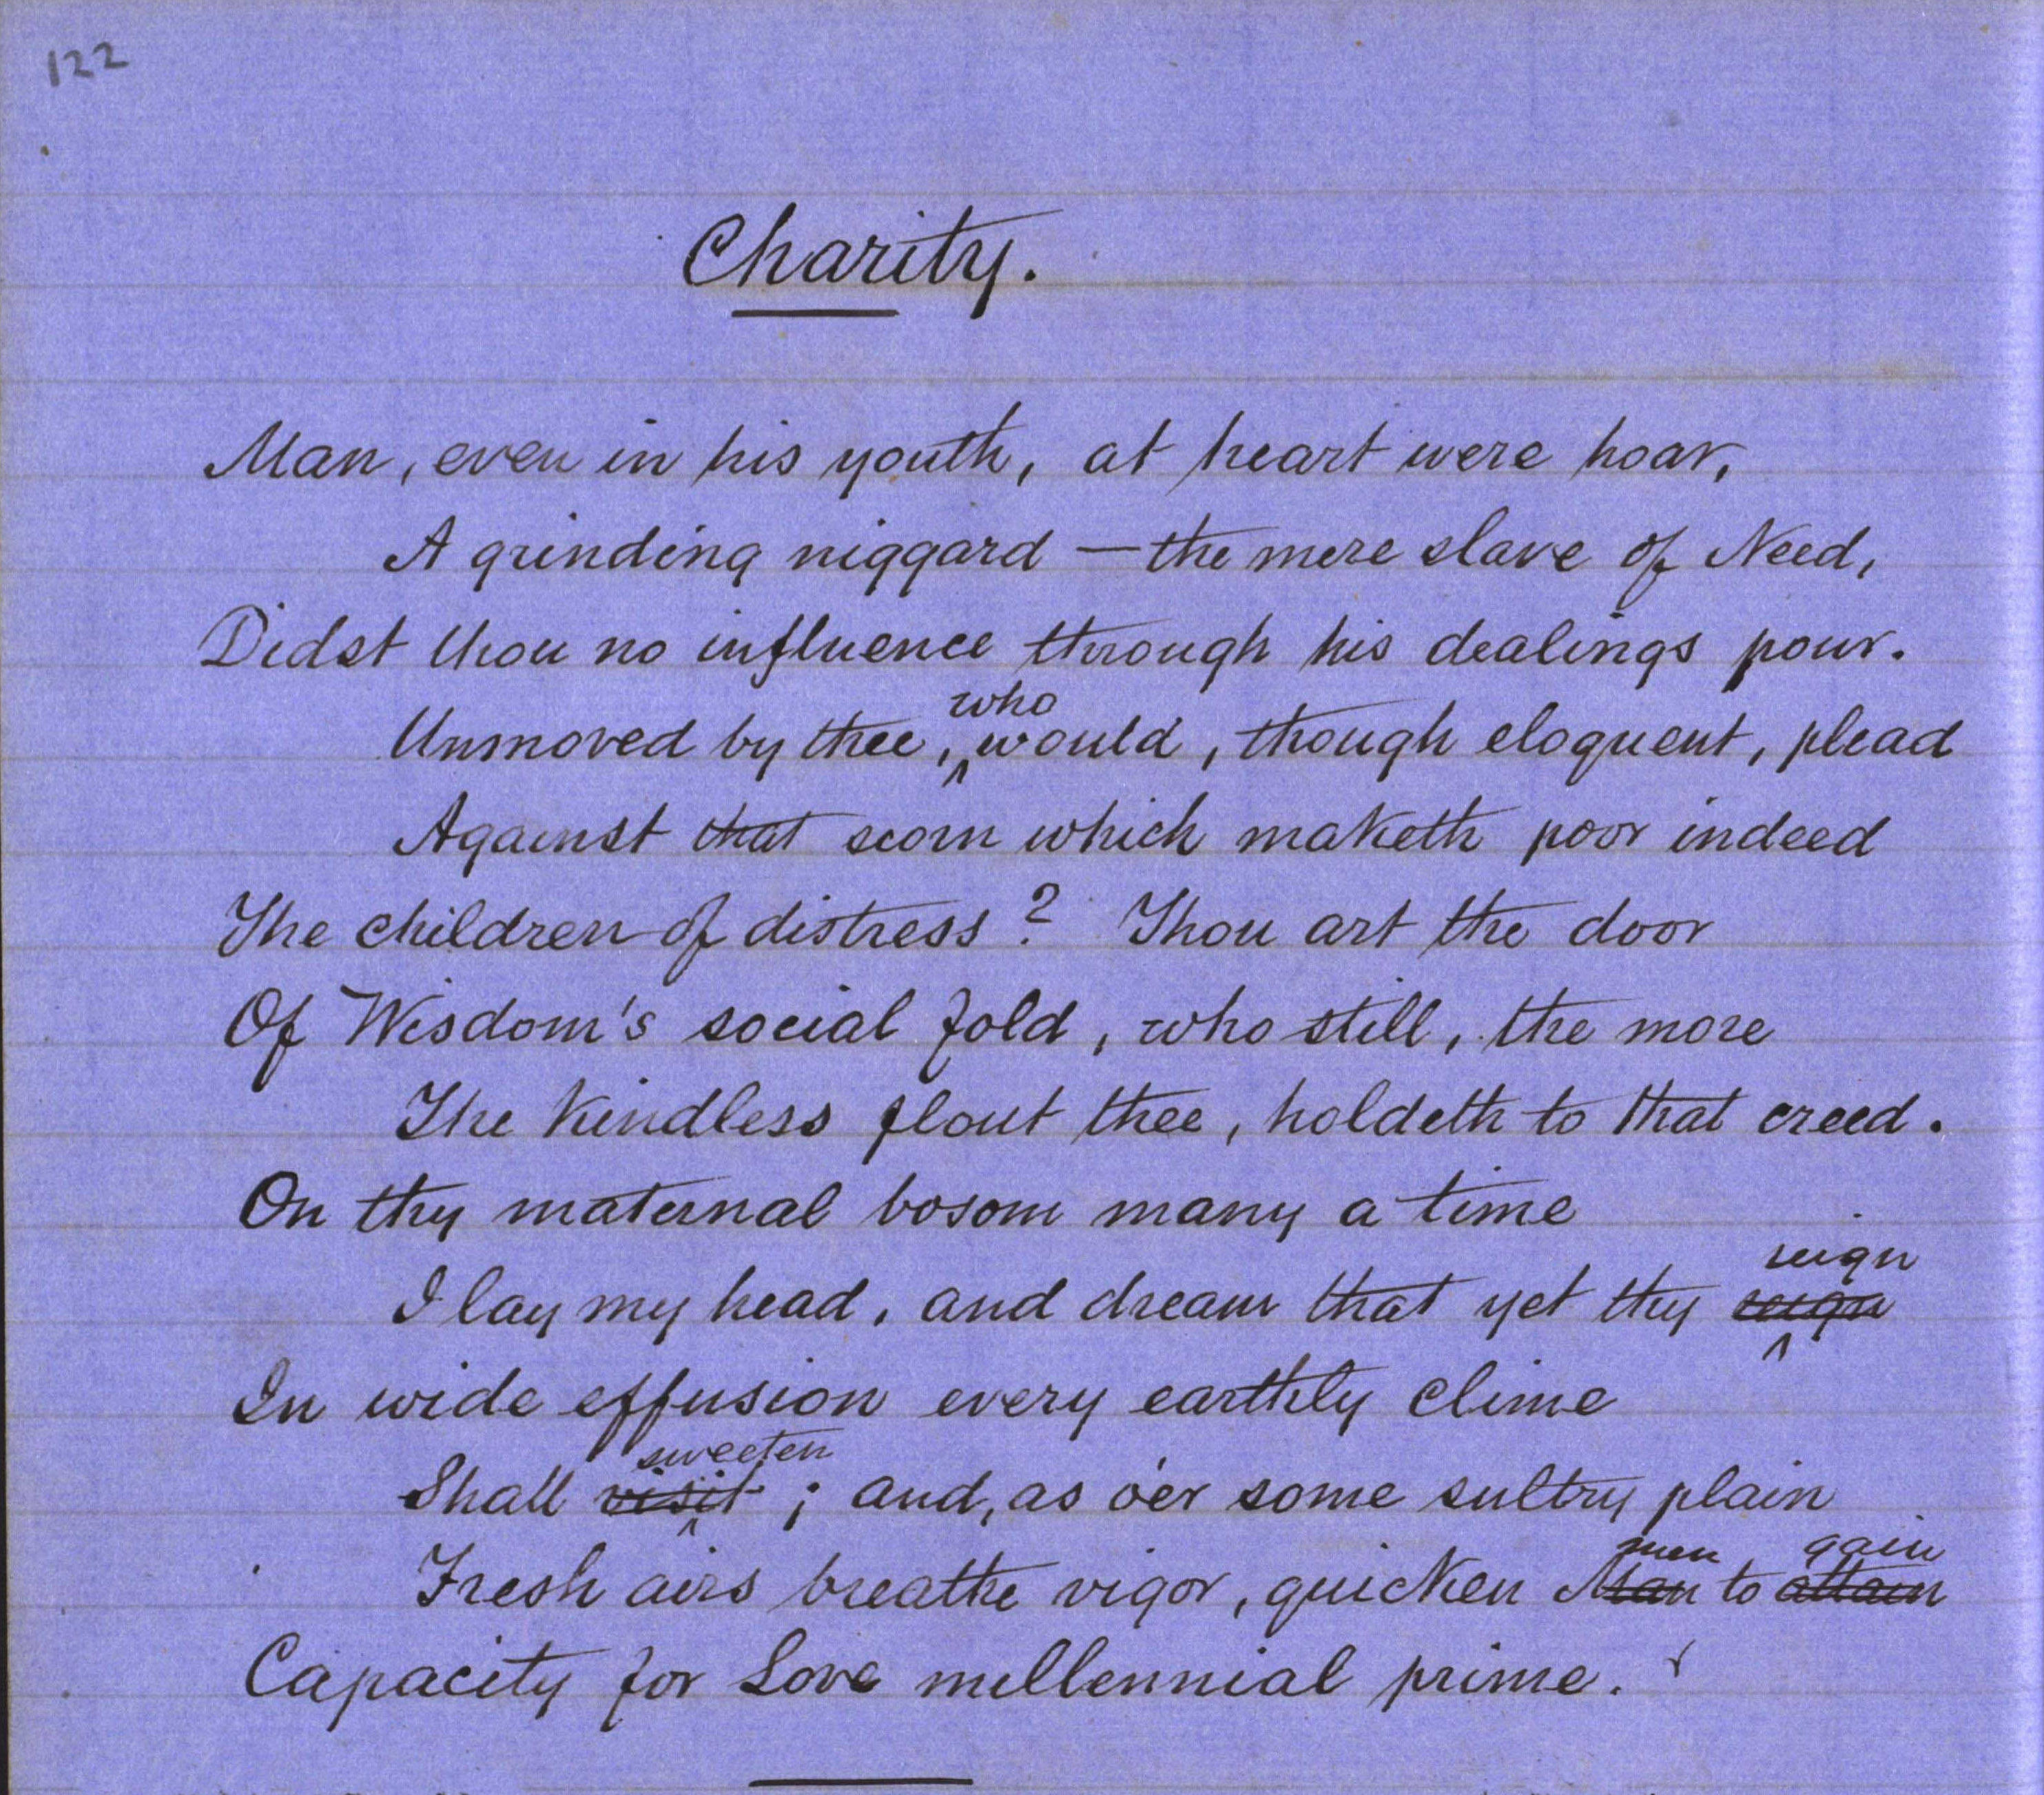 122
Charity.
Man, even in his youth, at heart were hoar,
A grinding niggard — the mere slave of Need,
Didst thou no influence through his dealings pour.
who
Unmoved by thee, ^ would, though eloquent, plead
Against that scorn which maketh poor indeed
The children of distress? Thou art the door
Of Wisdom's social fold, who still, the more
The kindless flout thee, holdeth to that creed.
On thy maternal bosom many a time
reign
I lay my head, and dream that yet thy reign
In wide effusion every earthly clime
sweeten
Shall visit; and, as o'er some sultry plain
men gain
Fresh airs breathe vigor, quicken Man to attain
Capacity for Love millennial prime.